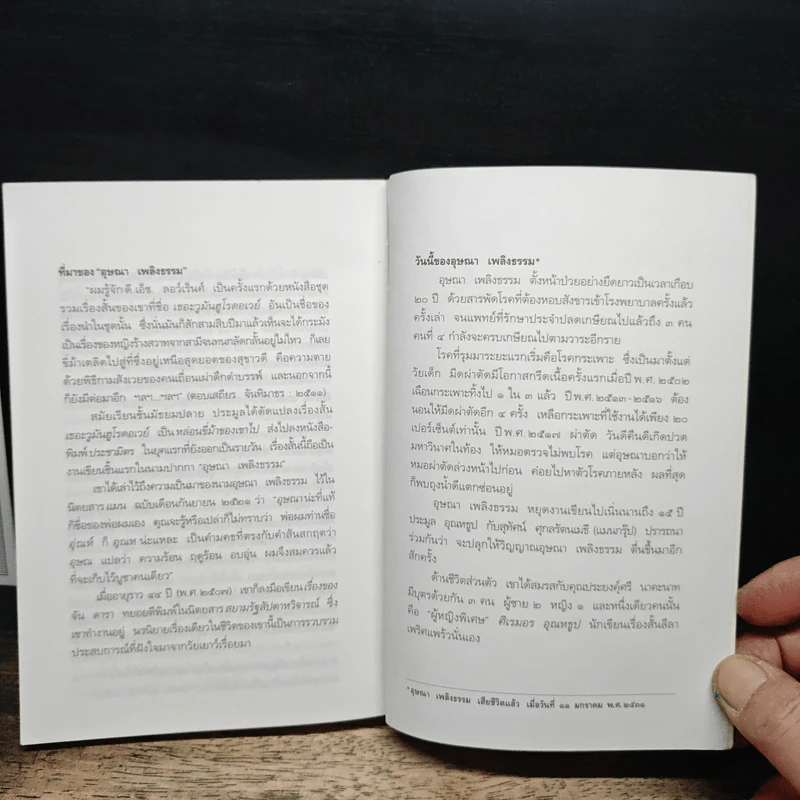 ที่มาของ "อุษณา เพลิงธรรม"
"ผมรู้จัก ดี.เอ็ช. ลอว์เร็นค์ เป็นครั้งแรกด้วยหนังสือชุด
รวมเรื่องสั้นของเขาที่ชื่อ เธอะวูมันฮูโรดอเวย์ อันเป็นชื่อของ
เรื่องนำในชุดนั้น ซึ่งนั่นมันก็สักสามสิบปีมาแล้วเห็นจะได้กระมัง
เป็นเรื่องของหญิงร้างสวาทจากสามีจนทนกลัดกลั้นอยู่ไม่ไหว ก็เลย
ขี่ม้าเตลิดไปสู่ที่ซึ่งอยู่เหนือสุดยอดของสุขาวดี คือความตาย
ด้วยพิธีกามสังเวยของคนเถื่อนเผ่าดึกดำบรรพ์ และนอกจากนี้
ก็ยังมีต่อมาอีก ฯลฯ ..ฯลฯ" (ตอบเสถียร จันทิมาธร : ๒๕๑๑)
สมัยเรียนชั้นมัธยมปลาย ประมูลได้ดัดแปลงเรื่องสั้น
เธอะวูมันฮูโรดอเวย์ เป็น หล่อนขี่ม้าของเขาไป ส่งไปลงหนังสือ-
พิมพ์ ประชามิตร ในยุคแรกที่ยังออกเป็นรายวัน เรื่องสั้นนี้ถือเป็น
งานเขียนชิ้นแรกในนามปากกา "อุษณา เพลิงธรรม"
เขาได้เล่าไว้ถึงความเป็นมาของนามอุษณา เพลิงธรรม ไว้ใน
นิตยสาร แมน ฉบับเดือนกันยายน ๒๕๒๑ ว่า "อุษณาน่ะที่แท้
ก็ชื่อของพ่อผมเอง คุณจะรู้หรือเปล่าก็ไม่ทราบว่า พ่อผมท่านชื่อ
อุ่ณห์ ก็ อุณห น่ะแหละ เป็นคำมคธที่ตรงกับคำสันสกฤตว่า
อุษณ แปลว่า ความร้อน ฤดูร้อน อบอุ่น ผมจึงสมควรแล้ว
ที่จะเก็บไว้บูชาคนเดียว"
เมื่ออายุราว ๔๔ ปี (พ.ศ. ๒๕๐๗) เขาก็ลงมือเขียน เรื่องของ
จัน ดารา ทยอยตีพิมพ์ในนิตยสาร สยามรัฐสัปดาหวิจารณ์ ซึ่ง
เขาทำงานอยู่ นวนิยายเรื่องเดียวในชีวิตของเขานี้เป็นการรวบรวม
ประสบการณ์ที่ฝังใจมาจากวัยเยาว์เรื่อยมา
วันนี้ของอุษณา เพลิงธรรม*
อุษณา เพลิงธรรม ตั้งหน้าป่วยอย่างยืดยาวเป็นเวลาเกือบ
๒๐ ปี ด้วยสารพัดโรคที่ต้องหอบสังขารเข้าโรงพยาบาลครั้งแล้ว
ครั้งเล่า จนแพทย์ที่รักษาประจำปลดเกษียณไปแล้วถึง ๓ คน
คนที่ ๔ กำลังจะครบเกษียณไปตามวาระอีกราย
โรคที่รุมมาระยะแรกเริ่มคือโรคกระเพาะ ซึ่งเป็นมาตั้งแต่
วัยเด็ก มีดผ่าตัดมีโอกาสกรีดเนื้อครั้งแรกเมื่อปี พ.ศ. ๒๕๐๒
เฉือนกระเพาะทิ้งไป ๑ ใน ๓ แล้ว ปี พ.ศ. ๒๕๑๓-๒๕๑๖ ต้อง
นอนให้มีดผ่าตัดอีก ๔ ครั้ง เหลือกระเพาะที่ใช้งานได้เพียง ๒๐
เปอร์เซ็นต์เท่านั้น ปี พ.ศ. ๒๕๑๗ ผ่าตัด วันดีคืนดีเกิดปวด
มหาวินาศในท้อง ให้หมอตรวจไม่พบโรค แต่อุษณาบอกว่าให้
หมอผ่าตัดล่วงหน้าไปก่อน ค่อยไปหาตัวโรคภายหลัง ผลที่สุด
ก็พบถุงน้ำดีแตกซ่อนอยู่
อุษณา เพลิงธรรม หยุดงานเขียนไปเนิ่นนานถึง ๑๕ ปี
ประมูล อุณหธูป กับสุทัศน์ ศุกลรัตนเมธี (แมนกรุ๊ป) ปรารถนา
ร่วมกันว่า จะปลุกให้วิญญาณอุษณา เพลิงธรรม ตื่นขึ้นมาอีก
สักครั้ง
ด้านชีวิตส่วนตัว เขาได้สมรสกับคุณประยงค์ศรี นาคะนาท
มีบุตรด้วยกัน ๓ คน ผู้ชาย ๒ หญิง ๑ และหนึ่งเดียวคนนั้น
คือ "ผู้หญิงพิเศษ" ศิเรมอร อุณหธูป นักเขียนเรื่องสั้นลีลา
เพริศแพร้วนั่นเอง
*อุษณา เพลิงธรรม เสียชีวิตแล้ว เมื่อวันที่ ๑๑ มกราคม พ.ศ. ๒๕๓๑